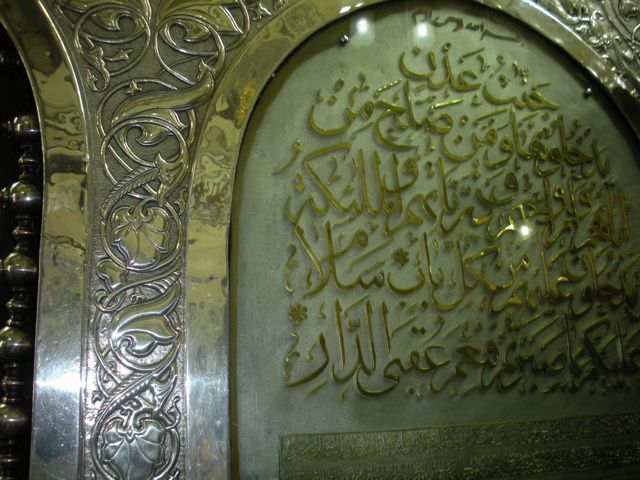 بسم الله الرحمن الرحيم
جنّٰت عدنٍ
يدخلونها ومن صلح من
اٰبائهم وازواجهم وذريّاتهم والملٰئكة
يدخلون عليهم من كلّ باب * سلامٌ
عليكم بما صبرتم فنعم عقبى الدّارِ *